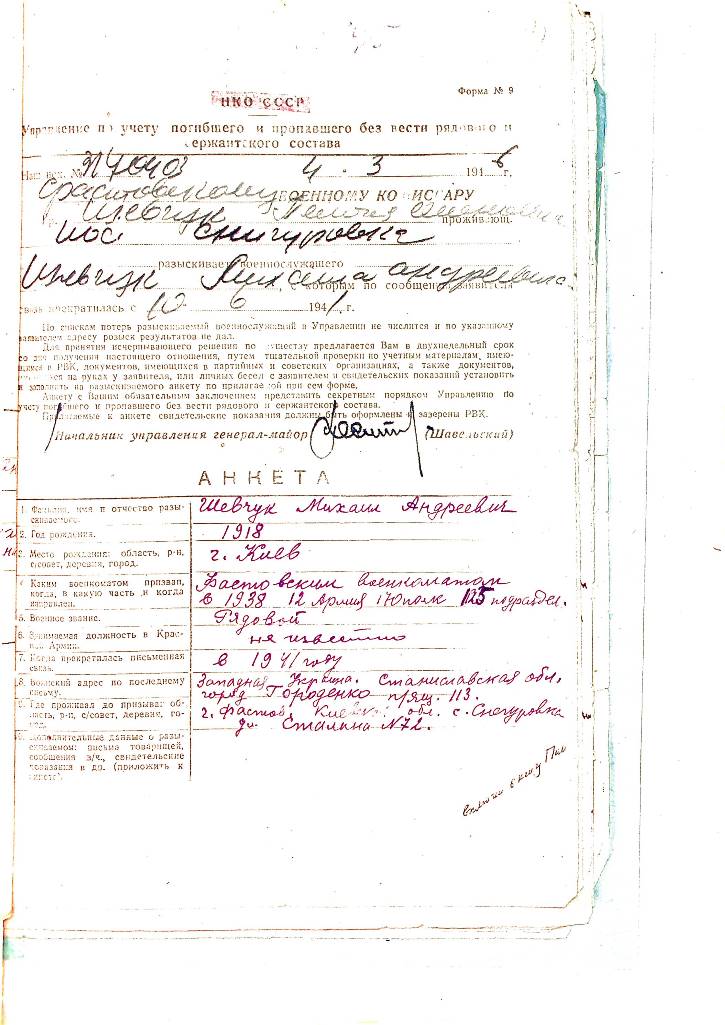 Форма № 9
НКО СССР
Управление по учету погибшего и пропавшего без вести рядового и
сержантского состава
Наш исх. № 4 . 3 1946 г.
ВОЕННОМУ КОМИССАРУ
Шевчук проживающ.
пос. Снигуровка
разыскивает военнослужащего
Шевчук Михаила Андреевича
с которым по сообщению заявителя
связь прекратилась с 10 6 1941 г.
По спискам потерь разыскиваемый военнослужащий в Управлении не числится и по указанному
заявителем адресу розыск результатов не дал.
Для принятия исчерпывающего решения по существу предлагается Вам в двухнедельный срок
со дня получения настоящего отношения, путем тщательной проверки по учетным материалам, имею-
щихся в РВК, документов, имеющихся в партийных и советских организациях, а также документов,
имеющихся на руках у заявителя, или личных бесед с заявителем и свидетельских показаний установить
и заполнить на разыскиваемого анкету по прилагаемой при сем форме.
Анкету с Вашим обязательным заключением представить секретным порядком Управлению по
учету погибшего и пропавшего без вести рядового и сержантского состава.
Прилагаемые к анкете свидетельские показания должны быть оформлены и заверены РВК.
Начальник управления генерал-майор (Шавельский)
АНКЕТА
1. Фамилия, имя и отчество разы-
скиваемого.
Шевчук Михаил Андреевич
2. Год рождения.
1918
3. Место рождения: область, р-н,
с/совет, деревня, город.
г. Киев
4. Каким военкоматом призван,
когда, в какую часть и когда
направлен.
Фастовским военкоматом
в 1938 12 Армия 170 полк 125 подраздел.
5. Военное звание.
Рядовой
6. Занимаемая должность в Крас-
ной Армии.
не известно
7. Когда прекратилась письменная
связь.
в 1941 году
8. Воинский адрес по последнему
письму.
Западная Украина. Станиславская обл.
город Городенко п/ящ. 113.
9. Где проживал до призыва: об-
ласть, р-н, с/совет, деревня, го-
род.
г. Фастов Киевской обл. с. Снегуровка
ул. Сталина N72.
10. Дополнительные данные о разы-
скиваемом: письма товарищей,
сообщения в/ч., свидетельские
показания и др. (приложить к
анкете).